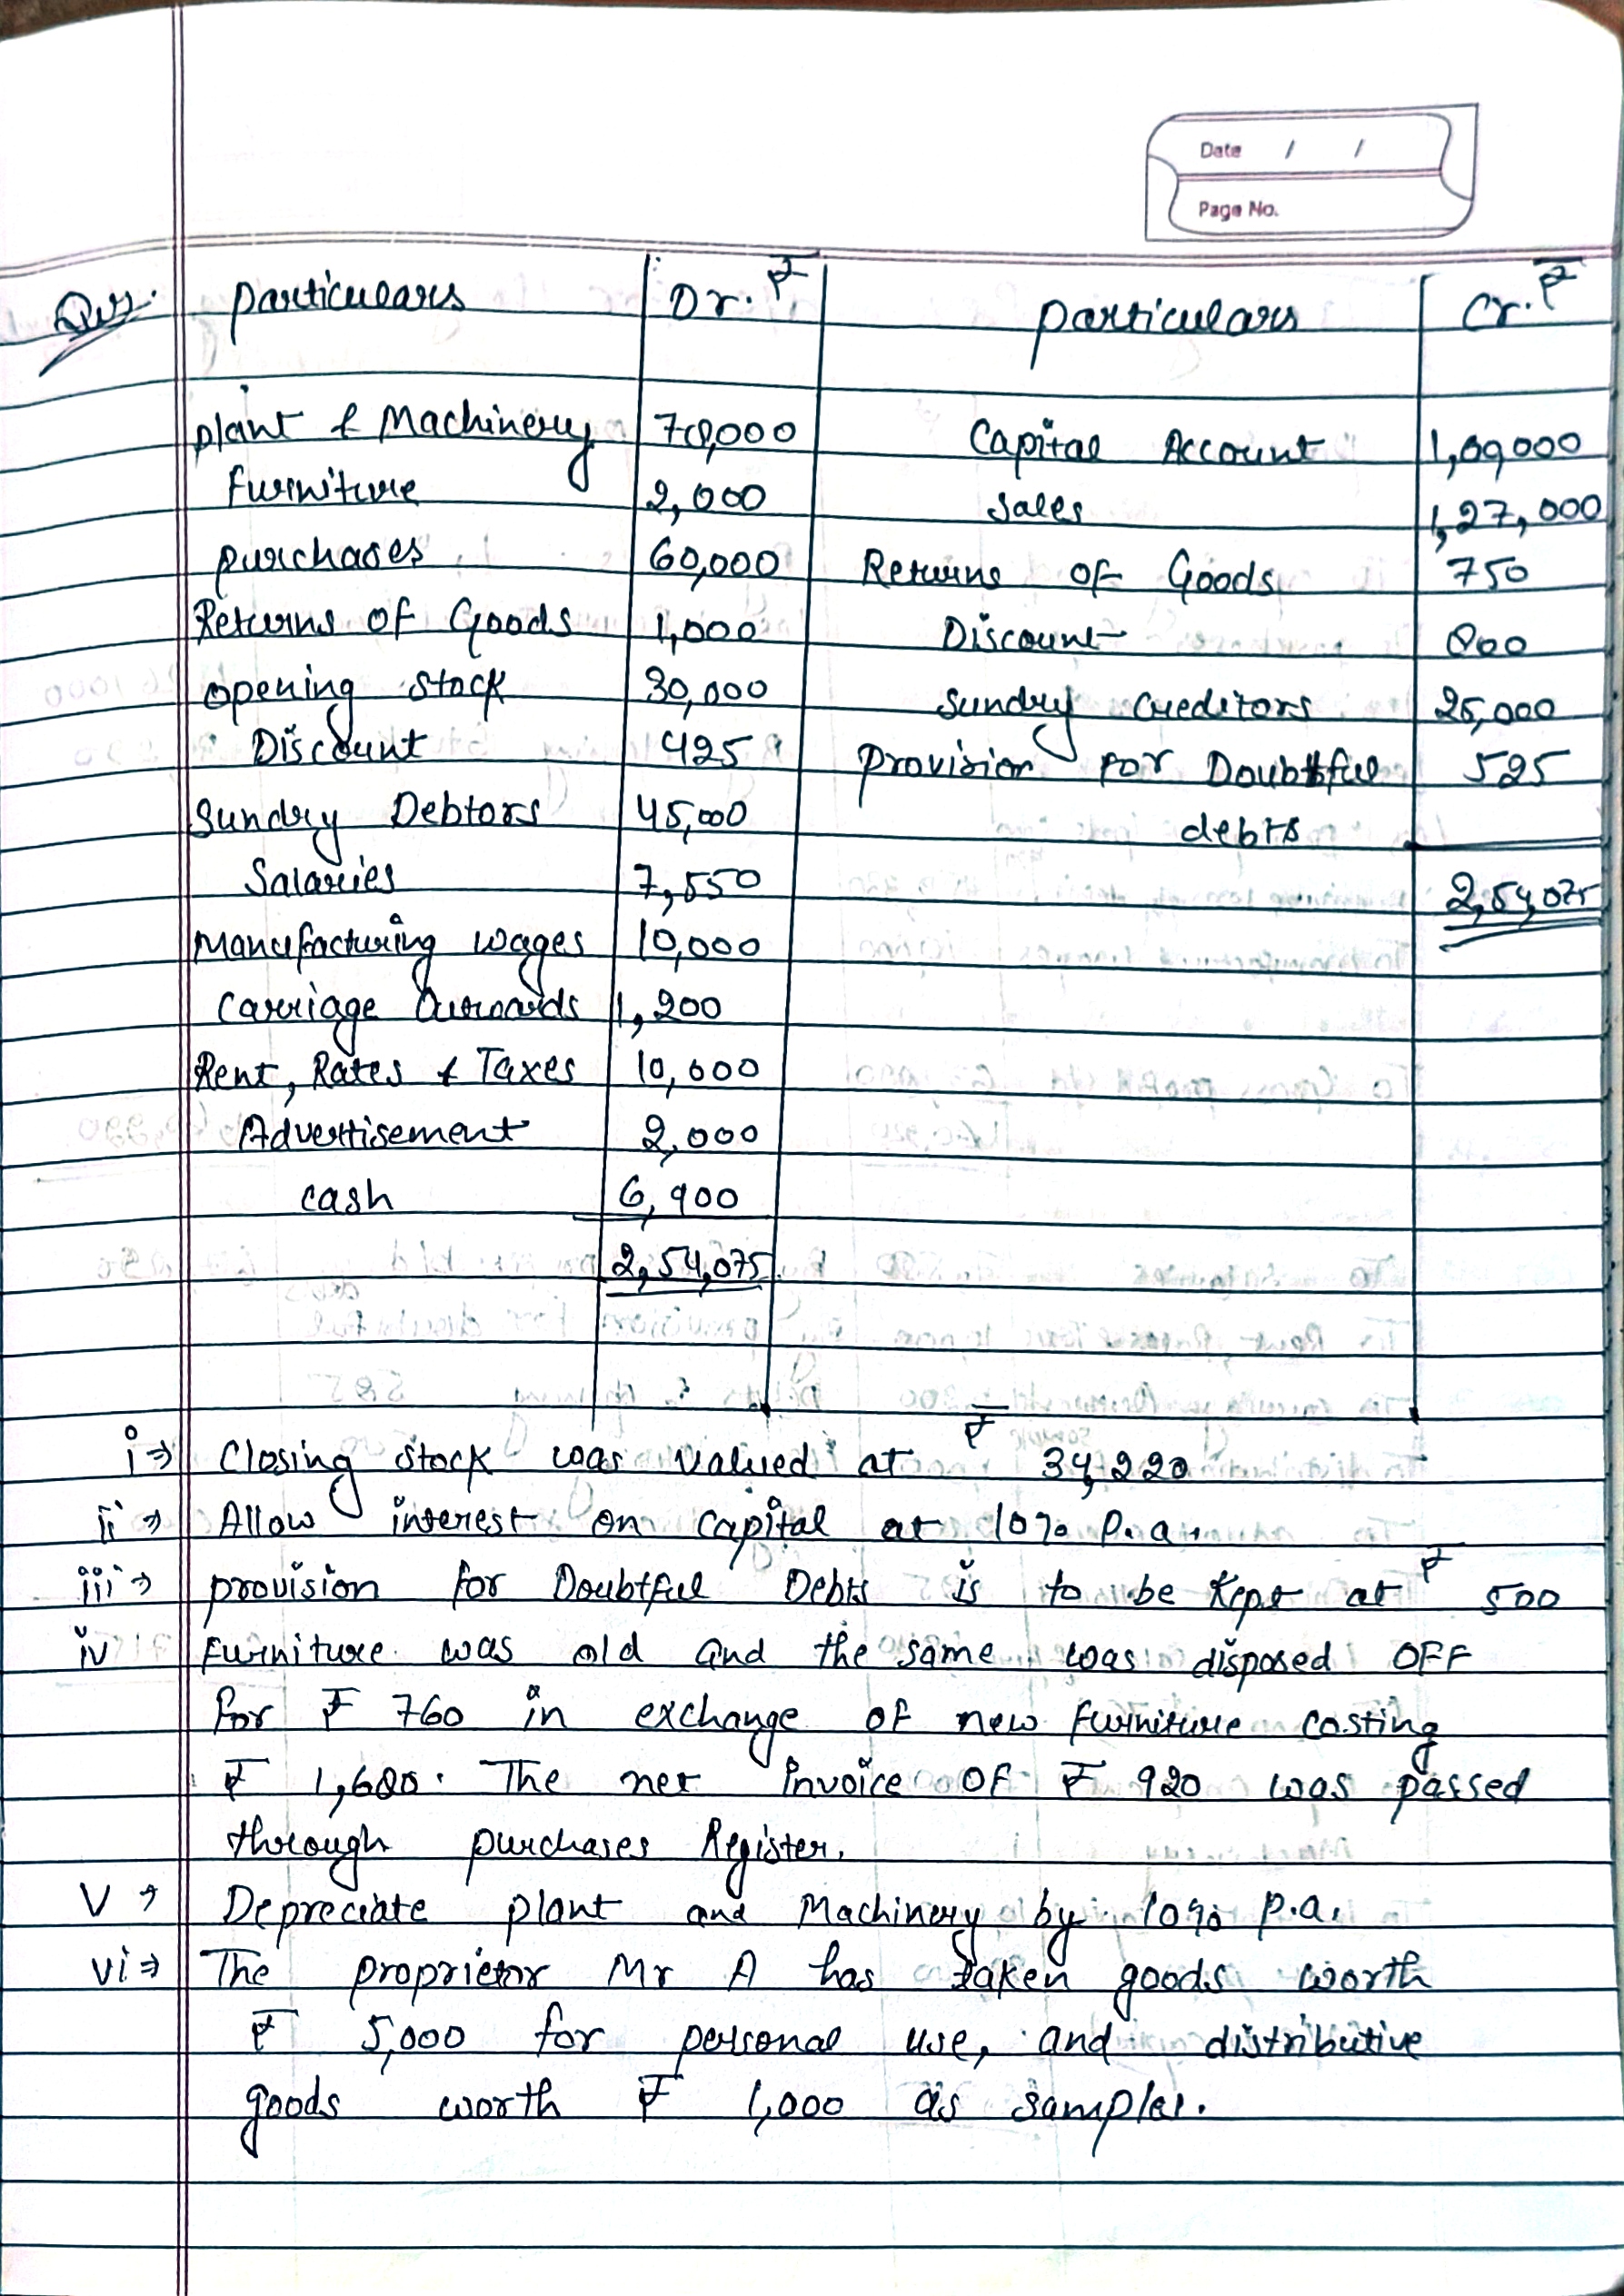 Date / /
Page No.
Ques. particulars Dr. ₹ particulars Cr. ₹
plant & Machinery 78,000 Capital Account 1,00,000
furniture 2,000 Sales 1,27,000
purchases 60,000 Returns of Goods 750
Returns of Goods 1,000 Discount 800
opening stock 30,000 Sundry Creditors 25,000
Discount 425 provision for Doubtful 525
Sundry Debtors 45,000 debts
Salaries 7,550 2,54,075
Manufacturing wages 10,000
Carriage Outwards 1,200
Rent, Rates & Taxes 10,000
Advertisement 2,000
cash 6,900
2,54,075
i⇒ Closing stock was valued at ₹ 34,220
ii⇒ Allow interest on capital at 10% p.a.
iii⇒ provision for Doubtful Debts is to be kept at ₹ 500
iv furniture was old and the same was disposed OFF
for ₹ 760 in exchange of new furniture costing
₹ 1,680. The net invoice OF ₹ 920 was passed
through purchases Register.
V → Depreciate plant and Machinery by 10% p.a.
vi⇒ The proprietor Mr A has taken goods worth
₹ 5,000 for personal use, and distributive
goods worth ₹ 1,000 as samples.